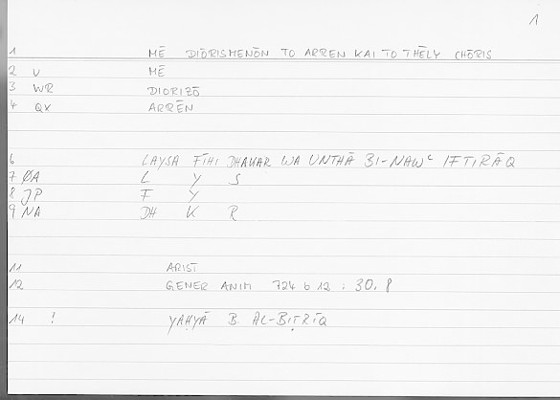 1
1 MĒ DIŌRISMENŌN TO ARREN KAI TO THĒLY CHŌRIS
2 V MĒ
3 WR DIORIZŌ
4 QX ARRĒN
6 LAYSA FĪHI DHAKAR WA UNTHĀ BI-NAWʿ IFTIRĀQ
7 ØA L Y S
8 JP F Y
9 NA DH K R
11 ARIST
12 GENER ANIM 724 b 12 : 30.8
14 ! YAḤYĀ B. AL-BIṬRĪQ